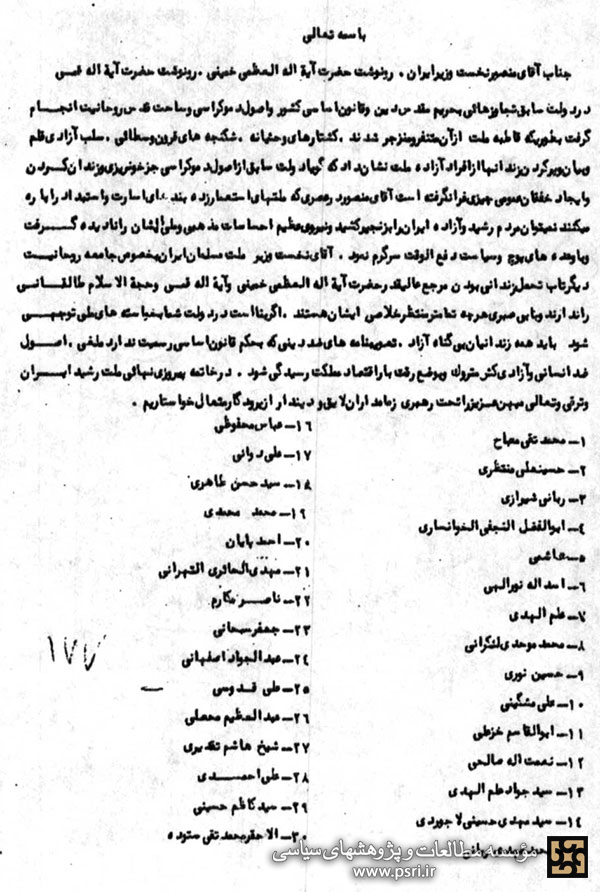 باسمه تعالی
جناب آقای منصور نخست وزیر ایران . رونوشت حضرت آیة اله العظمی خمینی . رونوشت حضرت آیة اله قمی
در دولت سابق تجاوزهائی بحریم مقدس دین وقانون اساسی کشور واصول دموکراسی وساحت قدس روحانیت انجام
گرفت بطوریکه قاطبه ملت ازآن متنفر ومنزجر شدند . کشتارهای وحشیانه . شکنجه های قرون وسطائی . سلب آزادی قلم
وبیان وپرکردن زندانها ازافراد آزاده ملت نشان داد که گویا دولت سابق ازاصول دموکراسی جز خونریزی وزندان کردن
وایجاد خفقان عمومی چیزی فرانگرفته است آقای منصور درعصری که ملتهای استعمار زده بند های اسارت واستبداد را پاره
میکنند نمیتوان مردم رشید وآزاده ایران را بزنجیر کشید ونیروی عظیم احساسات مذهبی وملی ایشان را نادیده گرفت
وباوعده های پوچ وسیاست دفع الوقت سرگرم نمود . آقای نخست وزیر ملت مسلمان ایران بخصوص جامعه روحانیت
دیگر تاب تحمل زندانی بودن مرجع عالیقدر حضرت آیة اله العظمی خمینی وآیة اله قمی وحجة الاسلام طالقانی
را ندارند وبابی صبری هرچه تمامتر منتظر خلاصی ایشان هستند . اگر بنا است در دولت شما بخواسته های ملی توجهی
شود باید همه زندانیان بی گناه آزاد . تصویبنامه های ضد دینی که بحکم قانون اساسی رسمیت ندارد ملغی . اصول
ضد انسانی وآزادی کش متروک وبوضع رقت بار اقتصاد مملکت رسیدگی شود . درخاتمه پیروزی نهائی ملت رشید ایران
وترقی وتعالی میهن عزیز را تحت رهبری زمامداران لایق ودیندار از پروردگار متعال خواستاریم .
۱– محمد تقی مصباح
۲– حسینعلی منتظری
۳– ربانی شیرازی
۴– ابوالفضل النجفی الخوانساری
۵– هاشمی
۶– اسد اله نورالهی
۷– علم الهدی
۸– محمد موحدی لنکرانی
۹– حسین نوری
۱۰– علی مشگینی
۱۱– ابوالقاسم خزعلی
۱۲– نعمت اله صالحی
۱۳– سید جواد علم الهدی
۱۴– سید مهدی حسینی لاجوردی
۱۶– عباس محفوظی
۱۷– علی دوانی
۱۸– سید حسن طاهری
۱۹– محمد محمدی
۲۰– احمد پایان
۲۱– مهدی الحائری التهرانی
۲۲– ناصر مکارم
۲۳– جعفر سبحانی
۲۴– عبدالجواد اصفهانی
۲۵– علی قدوسی
۲۶– عبدالعظیم محصلی
۲۷– شیخ هاشم تقدیری
۲۸– علی احمدی
۲۹– سید کاظم حسینی
۳۰– الاحقر محمد تقی ستوده
۱۷۷
مؤسسه مطالعات و پژوهشهای سیاسی
www.psri.ir